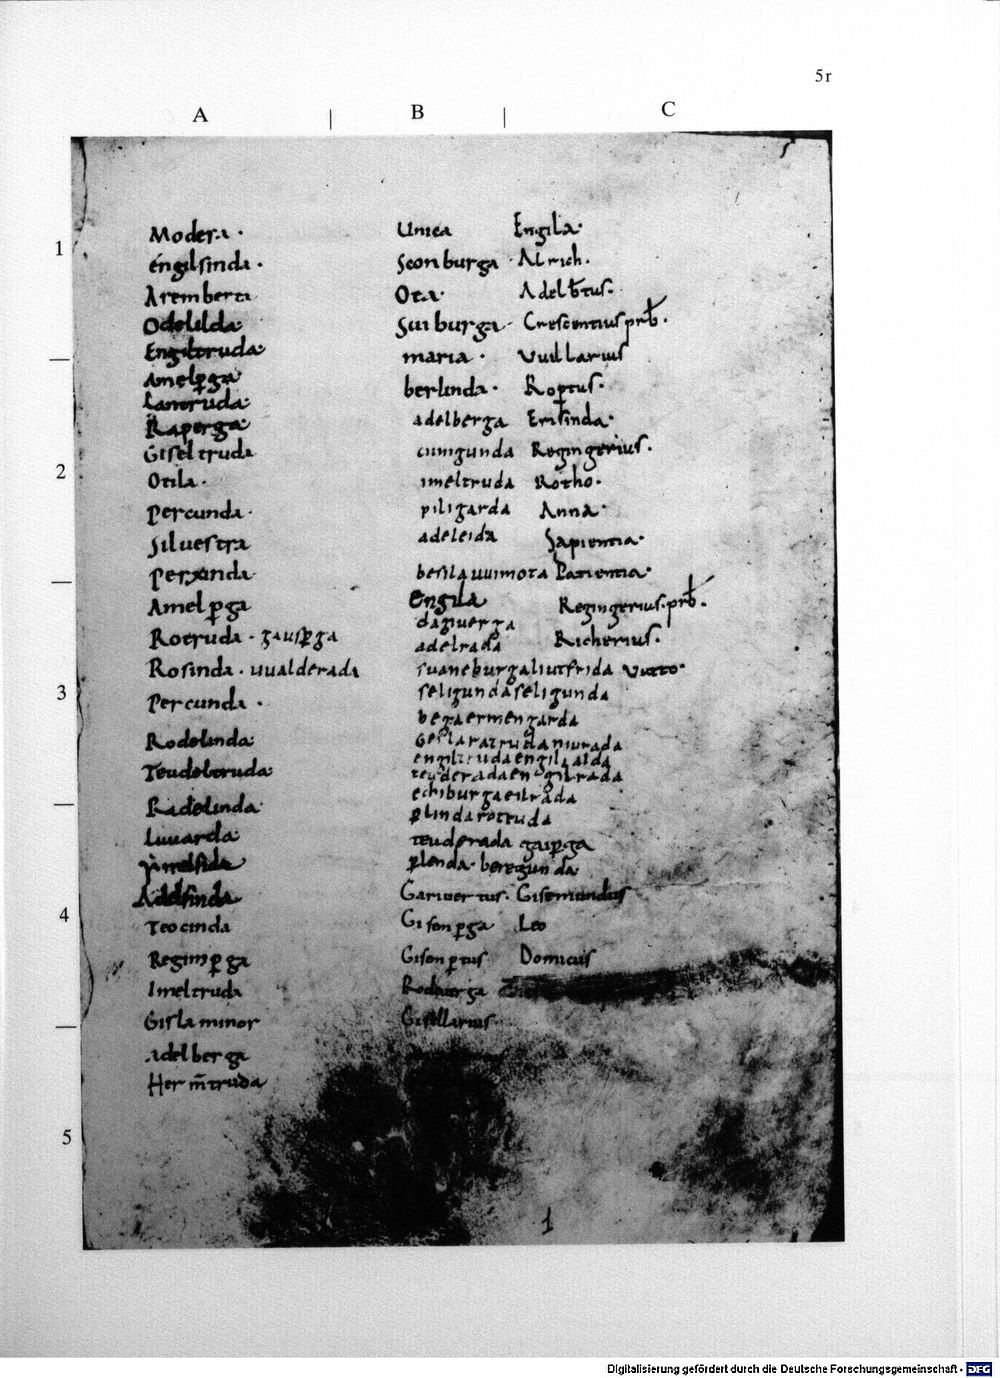 5r
A | B | C
1
2
3
4
5
Modera ·
engilsinda ·
Aremberta
Odelilda
Engiltruda
Amelꝑga
Lantruda
Raperga
Giseltruda
Otila ·
percunda ·
Siluestra
perxinda
Amelꝑga
Rotruda · gausꝑga
Rosinda · uualderada
percunda ·
Rodelinda
Teudeltruda
Radelinda
Liuuarda
Adelsinda
Teocinda
Reginꝑga
Imeltruda
Gisla minor
Adelberga
Herm̄truda
Unica
Sconburga ·
Ota ·
Suiburga ·
maria ·
berlinda ·
adelberga
cunigunda
imeltruda
piligarda
adeleida
besila uuimota
Engila
daginerga
adelrada
suaneburga liutfrida
seligunda seligunda
bega ermengarda
gesla ratruda niurada
engiltruda engilalda
teuderada engilrada
echiburga eilrada
ꝑlinda rotruda
teuderada gaiꝑga
ꝑlenda · beregunda
Gariuertus · Gisemundus
Gisenꝑga Leo
Gisenꝑtus Domicus
Gisellarius
Engila ·
Alrich ·
Adelb̄tus ·
Crescentius prb̄ ·
Vuillarius
Roptus ·
Erlsinda ·
Regingerius ·
Rotho ·
Anna ·
Sapientia ·
Patientia ·
Regingerius · prb̄ ·
Richerius ·
Vutto ·
1
Digitalisierung gefördert durch die Deutsche Forschungsgemeinschaft - DFG